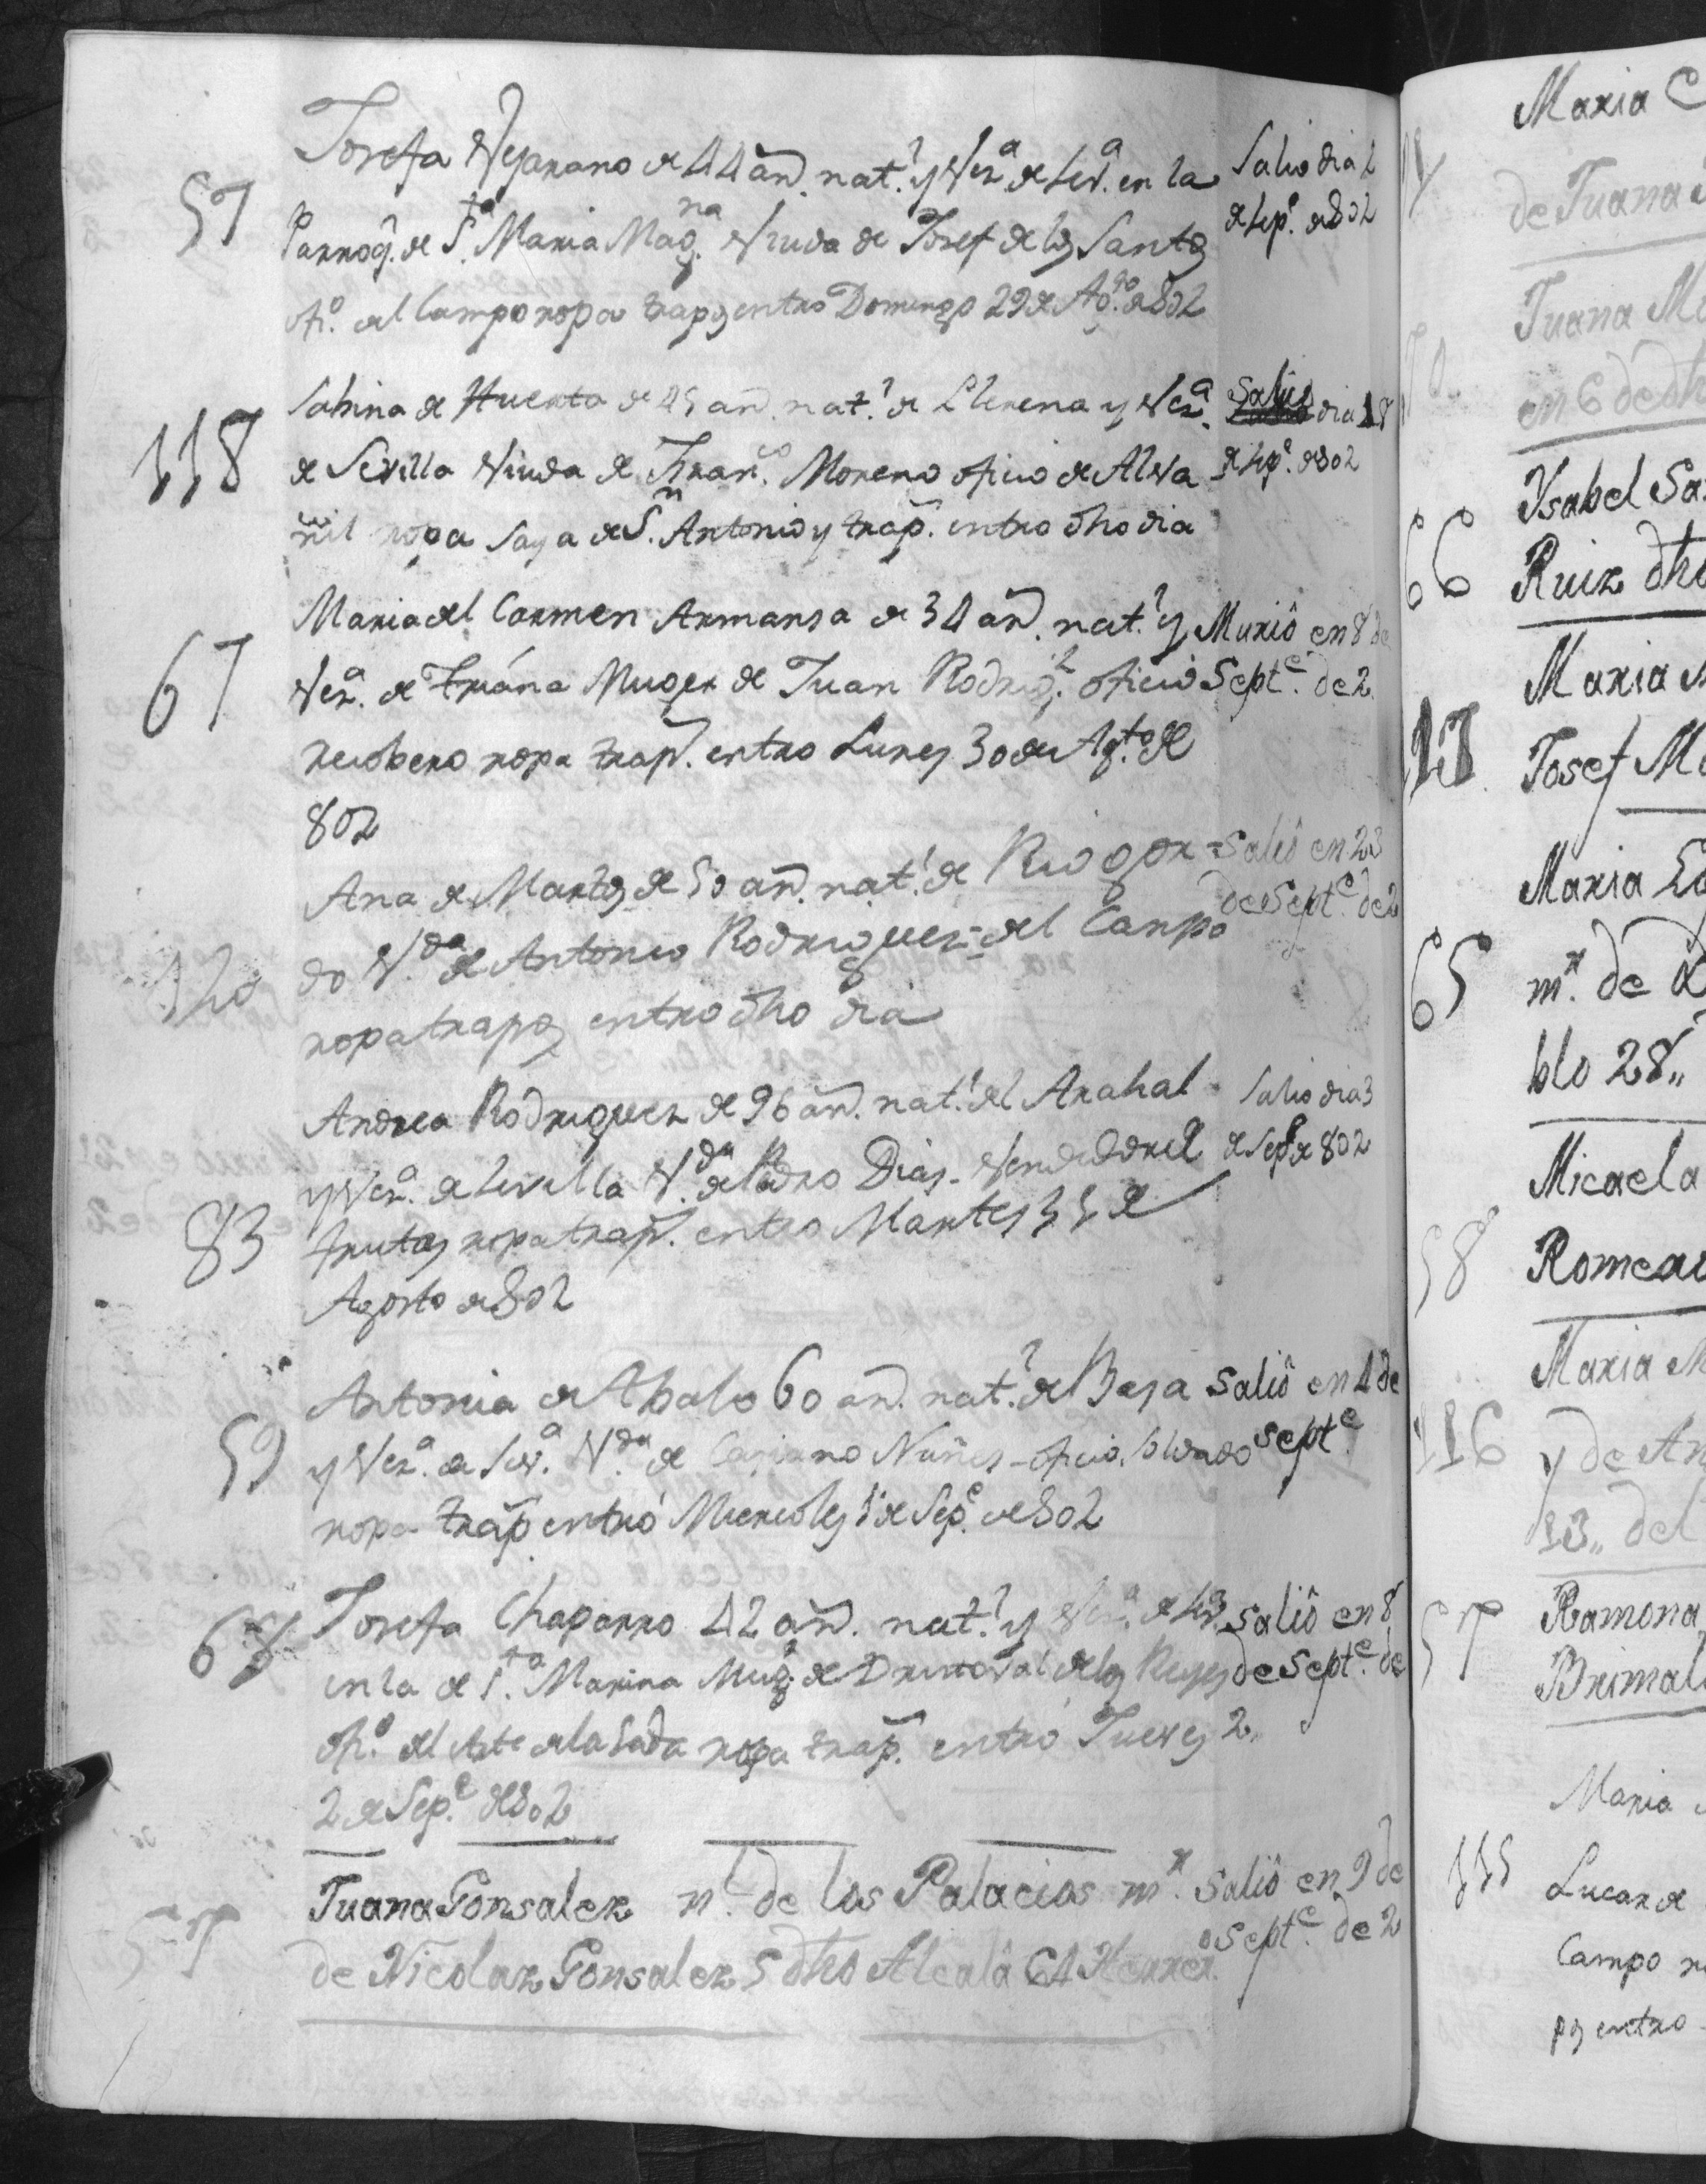 57
Josefa Vejarano de 44 añ. nat.l y Vez.a de Sev.a en la
Parroq. de S.ta Maria Mag.na Viuda de Josef de los Santos
ofi.o del Campo ropa trapos entro Domingo 29 de Ag.to de 802
Salio dia 2
de Sep.e de 802
118
Sabina de Huerta de 45 añ. nat.l de Llerena y Vez.a
de Sevilla Viuda de Fran.co Moreno oficio de Alva
ñil ropa saya de S.n Antonio y trap. entro dho dia
Salio dia 18
de Sep.e de 802
67
Maria del Carmen Armansa de 34 añ. nat.l y
Vez.a de Triána Muger de Juan Rodrig.z oficio
recobero ropa trap. entro Lunes 30 de Ag.to de
802
Murió en 8 de
Sept.e de 2
120
Ana de Martos de 50 añ. nat.l de Riogor-
do V.da de Antonio Rodriguez - del Campo
ropa trapos entro dho dia
Salió en 23
de Sept.e de 2
83
Andrea Rodriguez de 96 añ. nat.l del Arahal
y Vez.a de Sevilla V.da de Pedro Dias - Vendedor de
frutas ropa trap. entro Martes 31 de
Agosto de 802
Salio dia 3
de Sep.e de 802
59
Antonia de Abalo 60 añ. nat.l de Basa
y Vez.a de Sev.a V.da de Casiano Nuñes - oficio. soldado
ropa trap entró Miercoles 1 de Sep.e de 802
Salió en 4 de
Sept.e
68
Josefa Chaparro 42 añ. nat.l y Vez.a de Sev.a
en la de S.ta Marina Mug.r de Dristoval de los Reyes
ofi.o del Arte de la Seda ropa trap. entró Jueves 2
2 de Sep.e de 802
Salió en 8
de Sept.e de
57
Juana Gonsalez n.l de los Palacios m.r
de Nicolaz Gonsalez 5 dho Alcalá CA Herrer.o
Salió en 9 de
Sept.e de 2
Maria C
de Juana
Juana Ma
en 6 de dh
66
Ysabel Sa
Ruiz dho
Maria
Josef M
65
Maria
m.r de
blo 28,,
58
Micaela
Romea
116
Maria
y de An
13,, del
57
Ramona
Brimal
115
Maria
Lucar de
Campo
pos entro